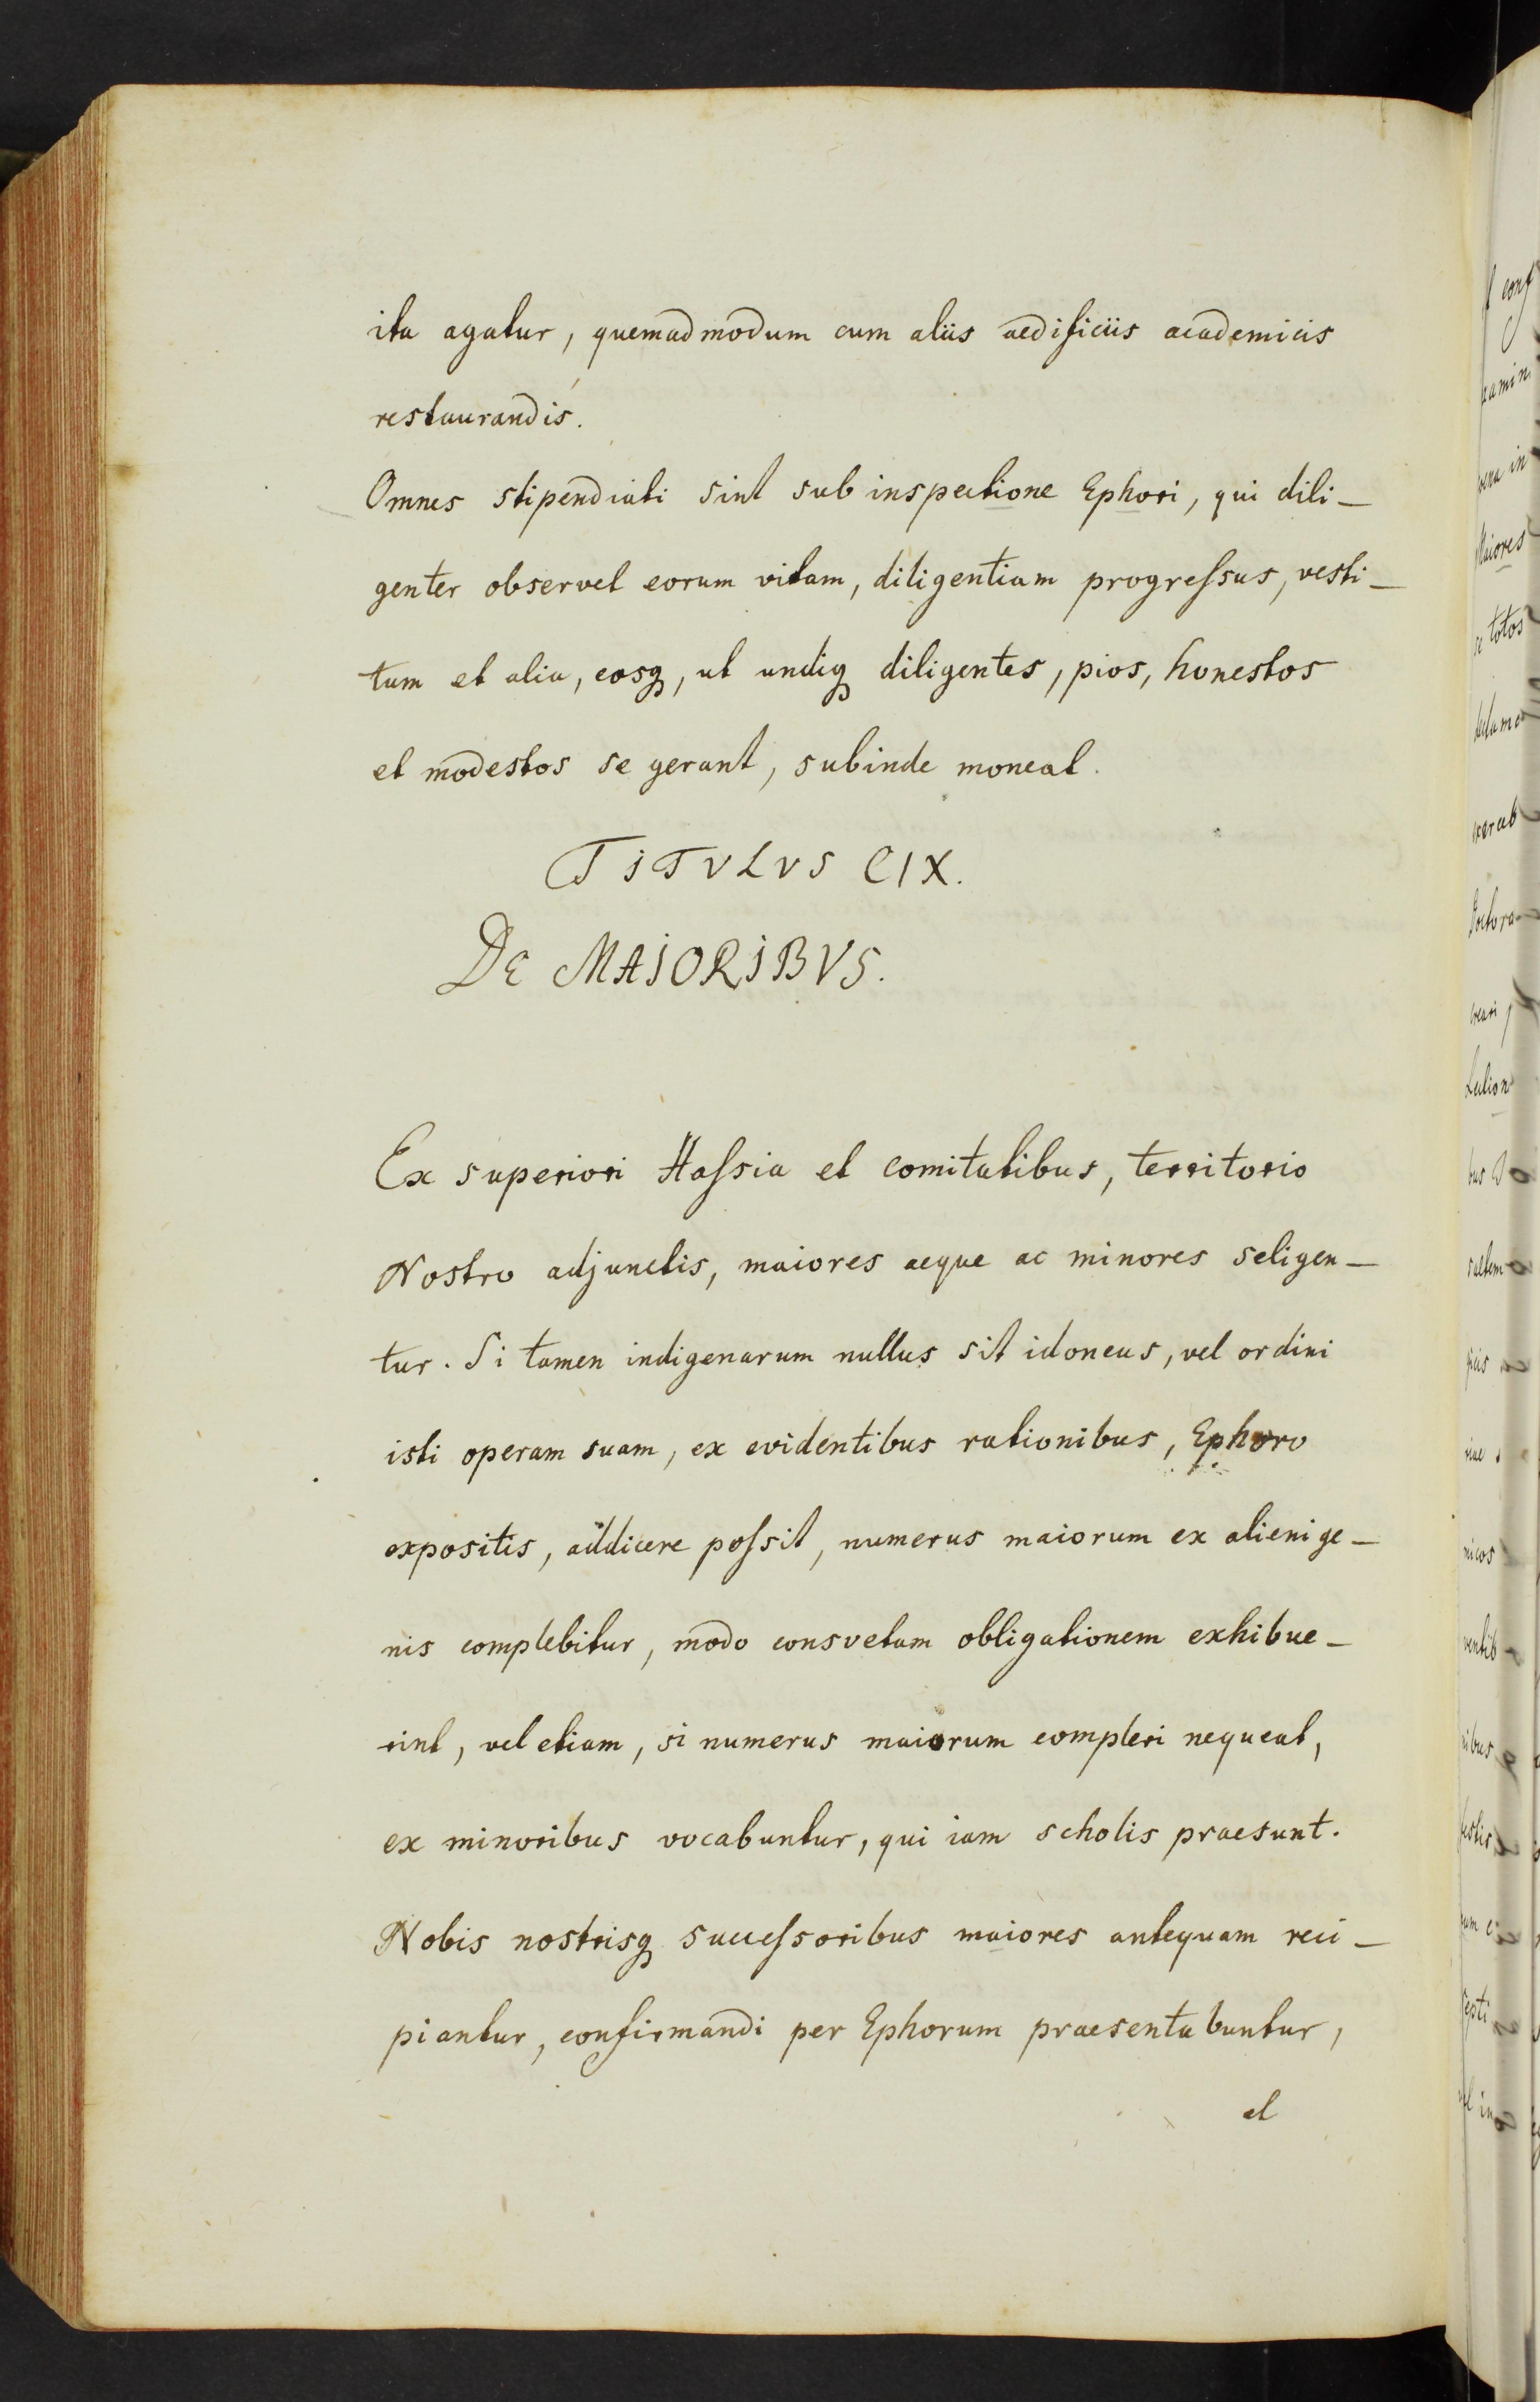 ita agatur, quemadmodum cum aliis aedificiis academicis
restaurandis.
Omnes stipendiati sint sub inspectione Ephori, qui dili-
genter observet eorum vitam, diligentiam progreſsus, vesti-
tum et alia, eosq, ut undiq diligentes, pios, honestos
et modestos se gerant, subinde moneat.
TITVLVS CIX.
De MAIORIBVS.
Ex superiori Haſsia et comitatibus, territorio
Nostro adjunctis, maiores aeque ac minores seligen-
tur. Si tamen indigenarum nullus sit idoneus, vel ordini
isti operam suam, ex evidentibus rationibus, Ephoro
expositis, addicere poſsit, numerus maiorum ex alienige-
nis complebitur, modo consvetam obligationem exhibue-
rint, vel etiam, si numerus maiorum compleri nequeat,
ex minoribus vocabuntur, qui iam scholis praesunt.
Nobis nostrisq succeſsoribus maiores antequam reci-
piantur, confirmandi per Ephorum praesentabuntur,
et